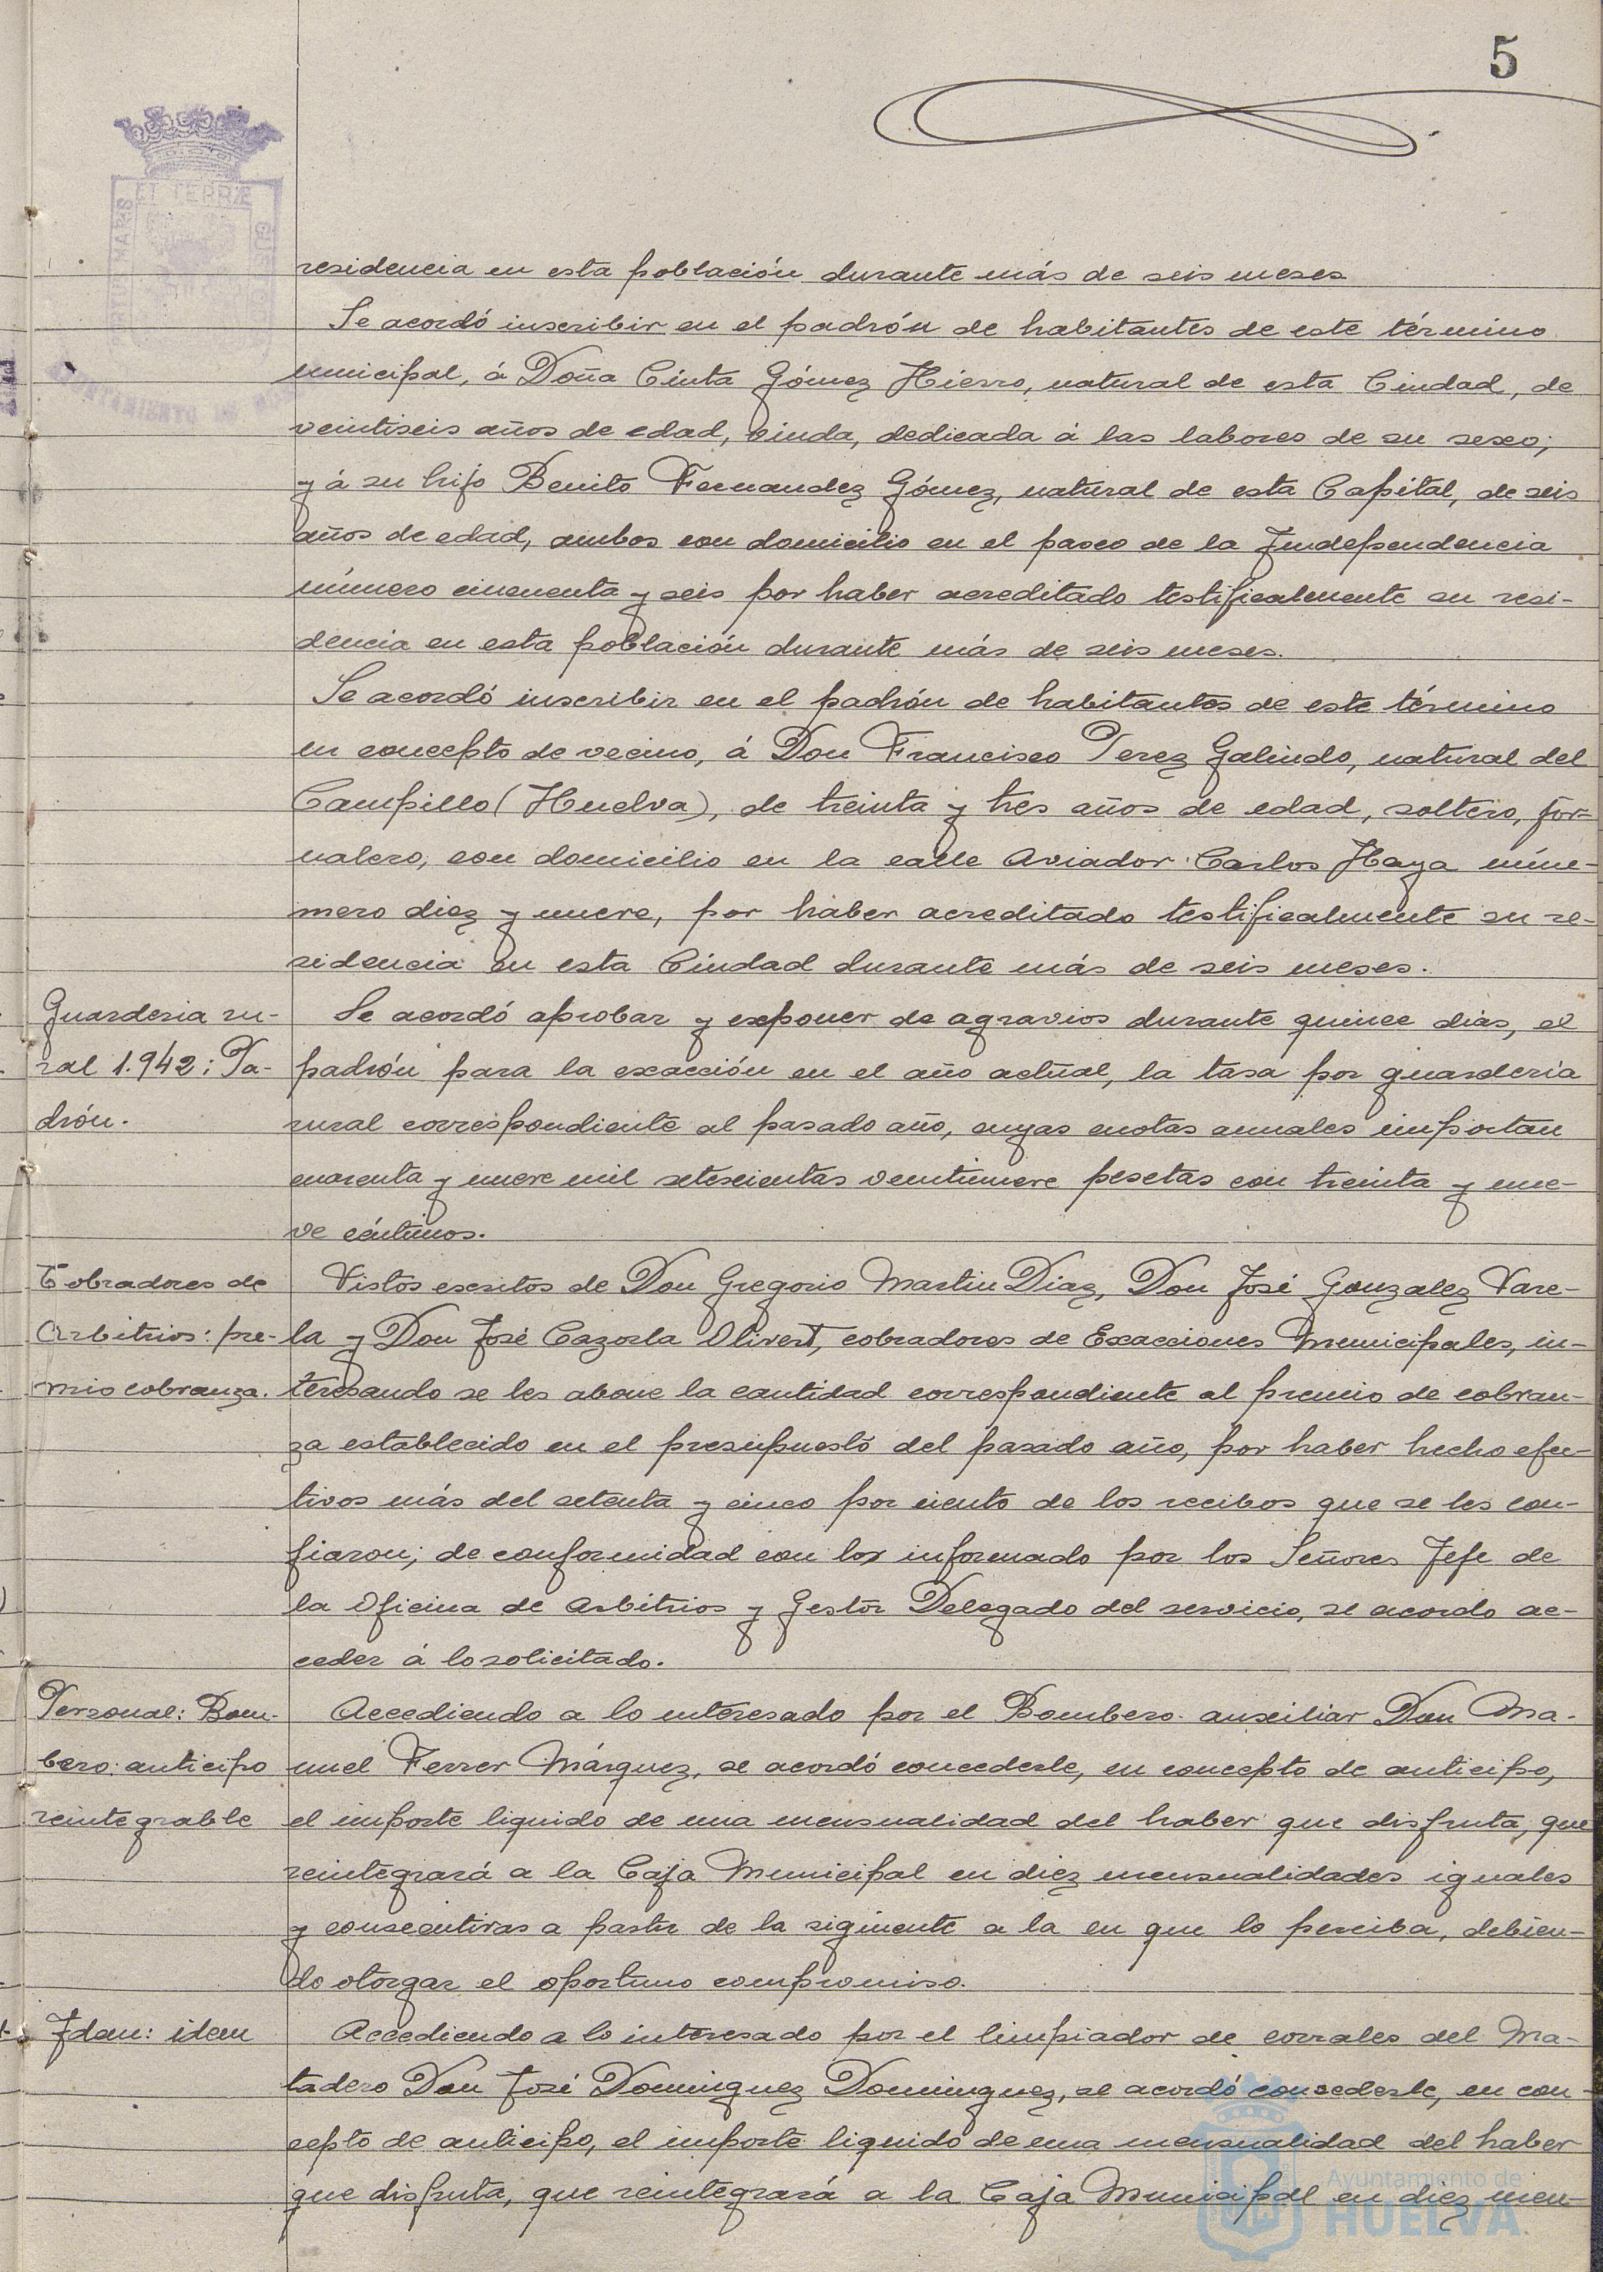 5
ET TERRÆ
residencia en esta población durante más de seis meses
Se acordó inscribir en el padrón de habitantes de este término
municipal, á Doña Cinta Gómez Hierro, natural de esta Ciudad, de
veintiseis años de edad, viuda, dedicada á las labores de su sexo;
y á su hijo Benito Fernandez Gómez, natural de esta Capital, de seis
años de edad, ambos con domicilio en el paseo de la Independencia
número cincuenta y seis por haber acreditado testificalmente su resi-
dencia en esta población durante más de seis meses.
Se acordó inscribir en el padrón de habitantes de este término
en concepto de vecino, á Don Francisco Perez Galindo, natural del
Campillo (Huelva), de treinta y tres años de edad, soltero, jor-
nalero, con domicilio en la calle Aviador Carlos Haya núme-
mero diez y nueve, por haber acreditado testificalmente su re-
sidencia en esta Ciudad durante más de seis meses.
Guarderia ru-
ral 1.942: Pa-
drón.
Se acordó aprobar y exponer de agravios durante quince dias, el
padrón para la exacción en el año actual, la tasa por guarderia
rural correspondiente al pasado año, cuyas cuotas anuales importan
cuarenta y nueve mil setescientas veintinueve pesetas con treinta y nue-
ve céntimos.
Cobradores de
Arbitrios: pre-
mio cobranza.
Vistos escritos de Don Gregorio Martin Diaz, Don José Gonzalez Vare-
la y Don José Cazorla Olivert, cobradores de Exacciones Municipales, in-
teresando se les abone la cantidad correspondiente al premio de cobran-
za establecido en el presupuesto del pasado año, por haber hecho efec-
tivos más del setenta y cinco por ciento de los recibos que se les con-
fiaron; de conformidad con lo informado por los Señores Jefe de
la Oficina de Arbitrios y Gestor Delegado del servicio, se acordo ac-
ceder á lo solicitado.
Personal: Bom-
bero: anticipo
reintegrable
Accediendo a lo interesado por el Bombero auxiliar Don Ma-
nuel Ferrer Márquez, se acordó concederle, en concepto de anticipo,
el importe liquido de una mensualidad del haber que disfruta, que
reintegrará a la Caja Municipal en diez mensualidades iguales
y consecutivas a partir de la siguiente a la en que lo perciba, debien-
do otorgar el oportuno compromiso.
Idem: idem
Accediendo a lo interesado por el limpiador de corrales del Ma-
tadero Don José Dominguez Dominguez, se acordó concederle, en con-
cepto de anticipo, el importe liquido de una mensualidad del haber
que disfruta, que reintegrará a la Caja Municipal en diez men-
Ayuntamiento de
HUELVA